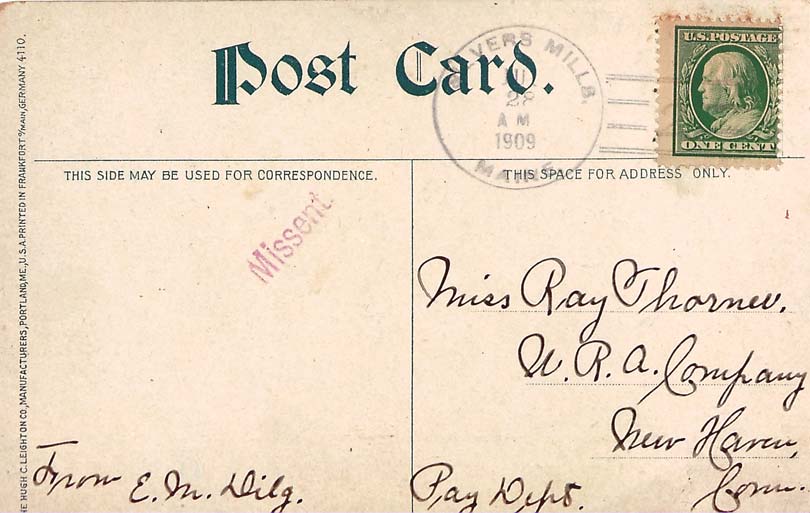 Post Card.
U.S. POSTAGE
ONE CENT
MILLS.
28
A M
1909
MAINE
THIS SIDE MAY BE USED FOR CORRESPONDENCE.
THIS SPACE FOR ADDRESS ONLY.
Missent.
Miss Ray Thorner.
W. R. A. Company
New Haven,
Conn.
Pay Dept.
From E. M. Dilg.
HE HUGH C. LEIGHTON CO., MANUFACTURERS, PORTLAND, ME., U.S.A. PRINTED IN FRANKFORT o/MAIN, GERMANY 4110.